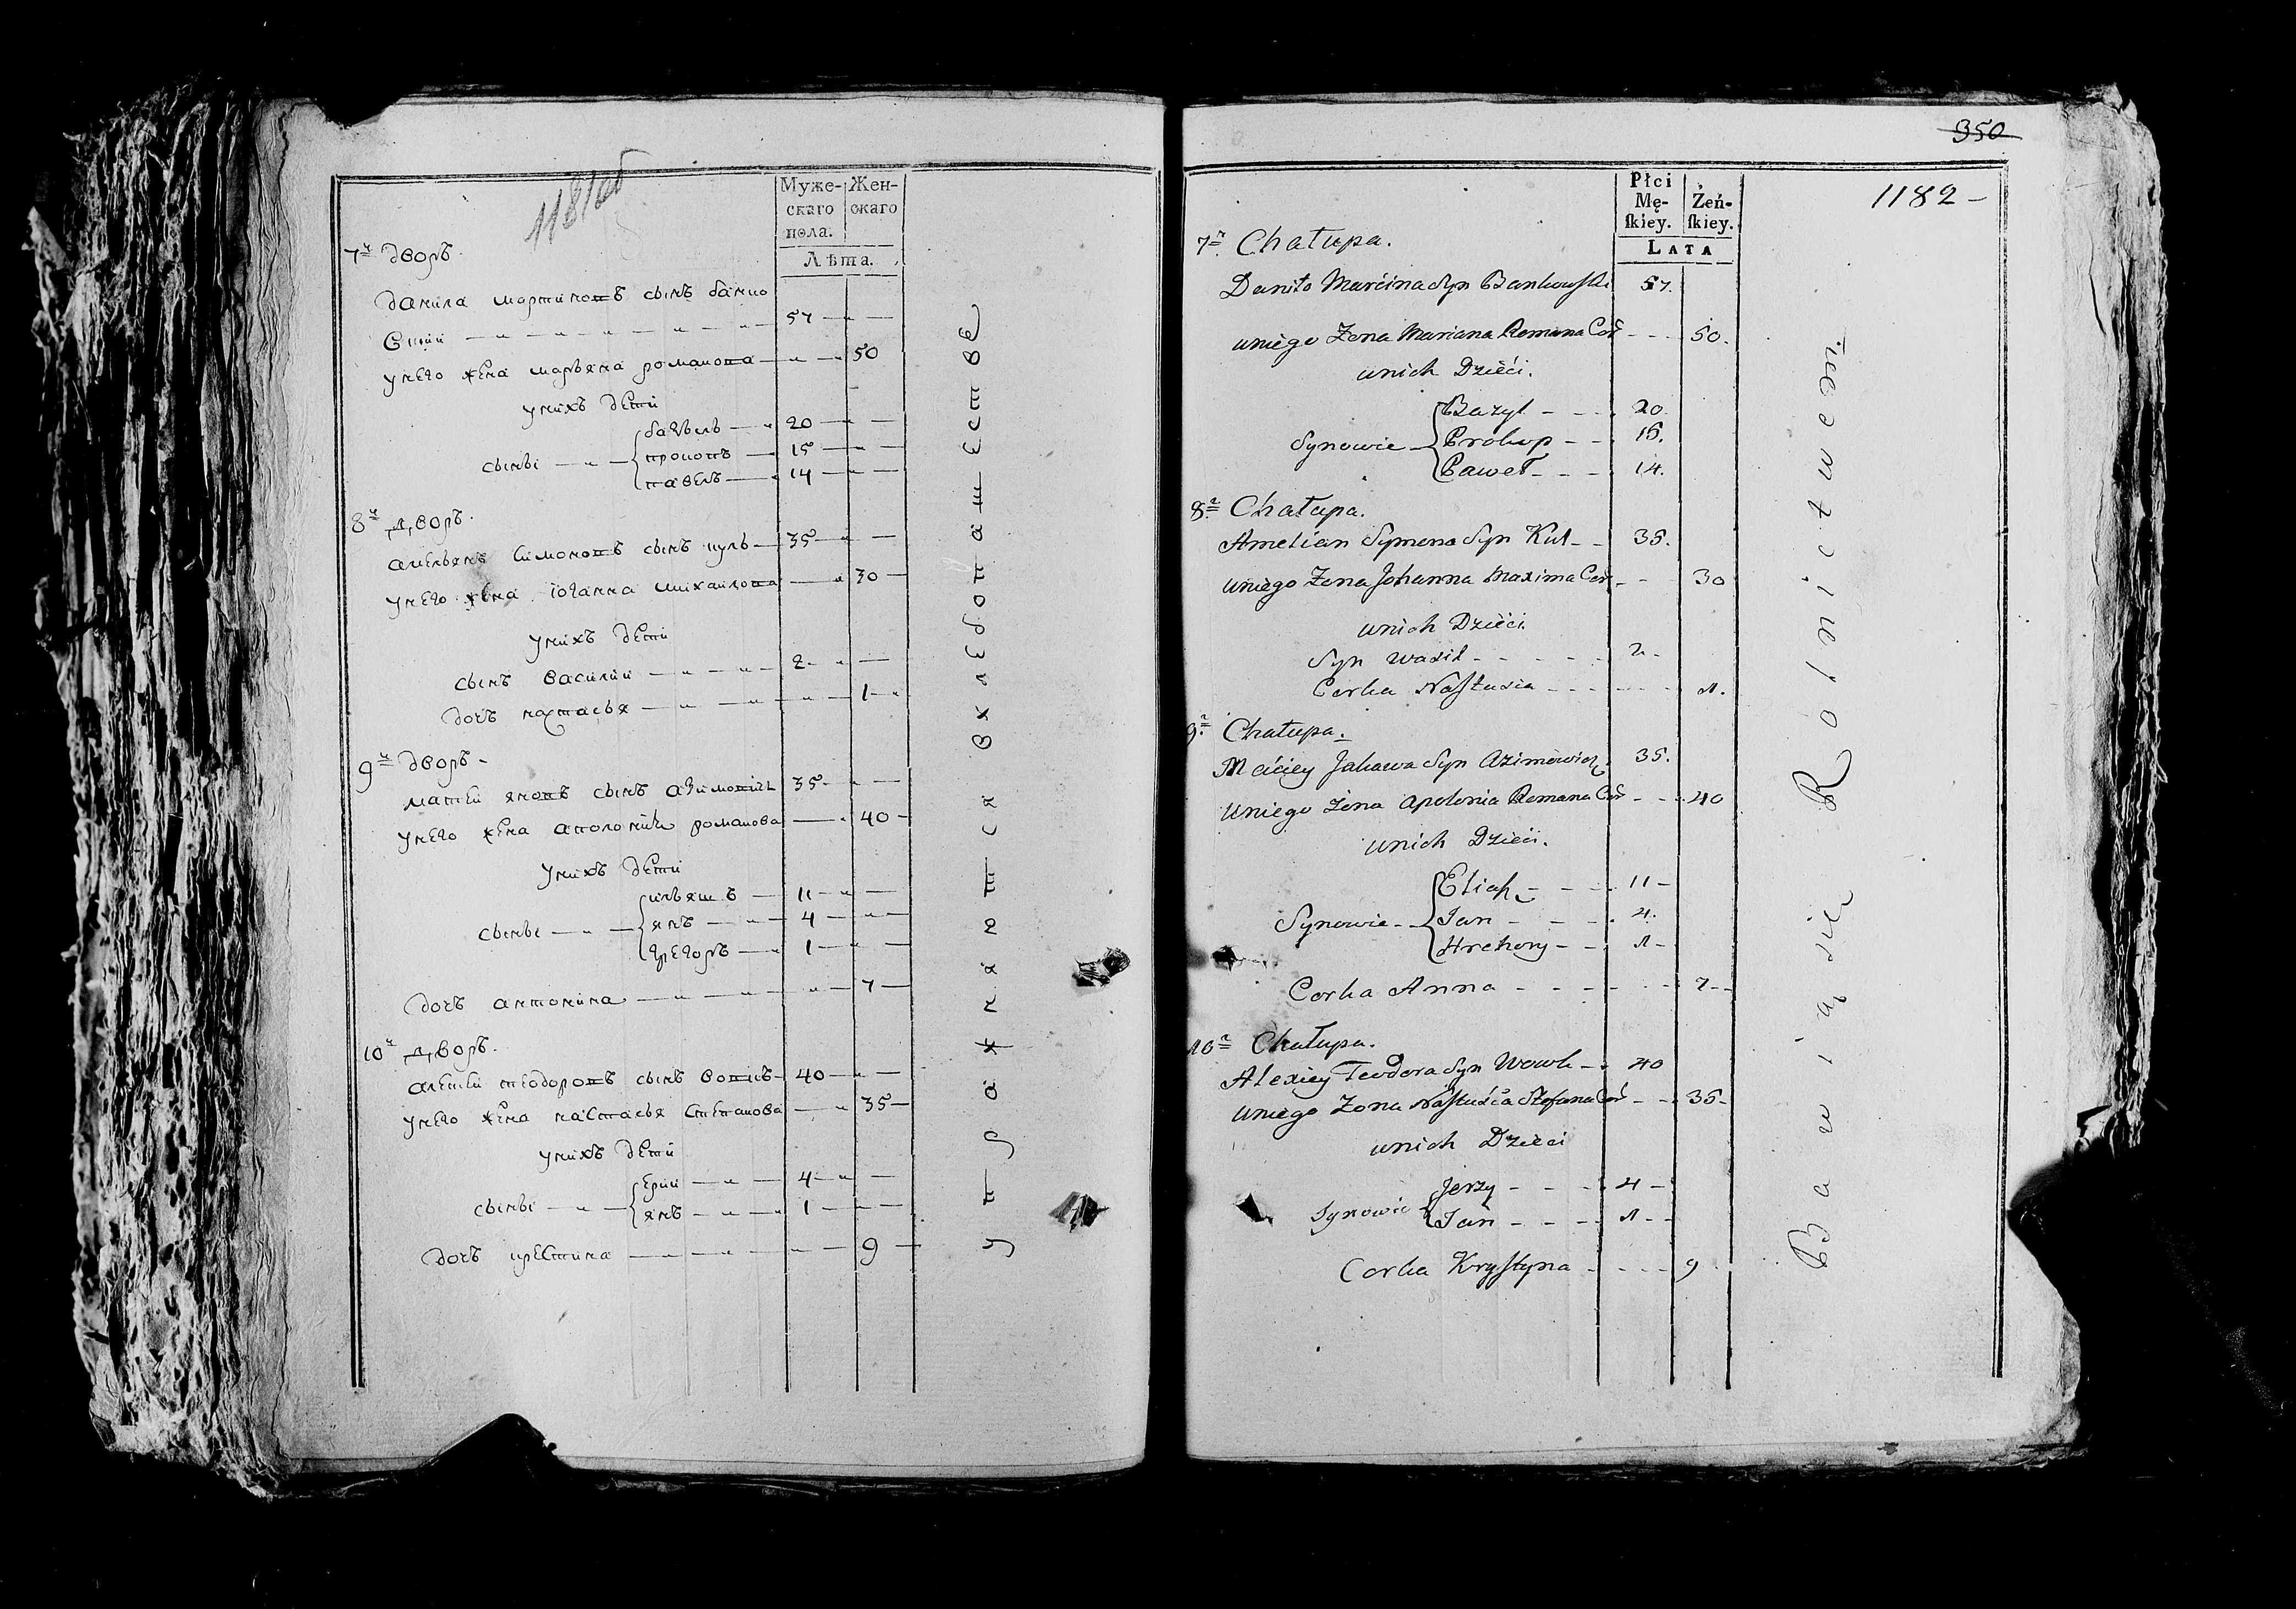 1181об
Муже-
скаго
пола.
Жен-
скаго
Лѣта.
7й дворъ.
данила мартиновъ сынъ банко
вский 57
унего жена марьяна романова 50
унихъ дети
базыль 20
сыны прокопъ 15
павелъ 14
8й дворъ.
амельянъ симоновъ сынъ куль 35
унего жена иоганна михаилова 30
унихъ дети
сынъ василий 2
дочь настасья 1
9й дворъ
матей яковъ сынъ азимовичь 35
унего жена аполония романова 40
унихъ дети
ильяшъ 11
сыны янъ 4
грегоръ 1
дочь антонина 7
10й дворъ.
алексей теодоровъ сынъ вовкъ 40
унего жена настасья степанова 35
унихъ дети
ерий 4
сыны янъ 1
дочь крестина 9
упражняются вхлебопашестве
350
1182
Płci
Mę-
ſkiey.
Żeń-
ſkiey.
LATA
7a Chałupa.
Daniło Marcina Syn Bankowski 57.
uniego Zona Mariana Romana Cor 50.
unich Dzieći.
Bazyl 20.
Synowie Prokop 15.
Paweł 14.
8a Chałupa.
Amelian Symona Syn Kul 35.
uniego Zona Johanna Maxima Cor 30
unich Dzieći.
Syn Wasil 2
Corka Nastusia 1.
9a Chałupa.
Maciey Jakowa Syn Azimowicz 35.
uniego Zona Apolonia Romana Cor 40
unich Dzieći.
Eliasz 11
Synowie Jan 4.
Hrehory 1
Corka Anna 7
10a Chałupa.
Alexiey Teodora Syn Wowk 40
uniego Zona Nastusia Stefana Cor 35
unich Dzieci
Jerzy 4
Synowie Jan 1
Corka Krystyna 9
Bawią się Rolnictwem.